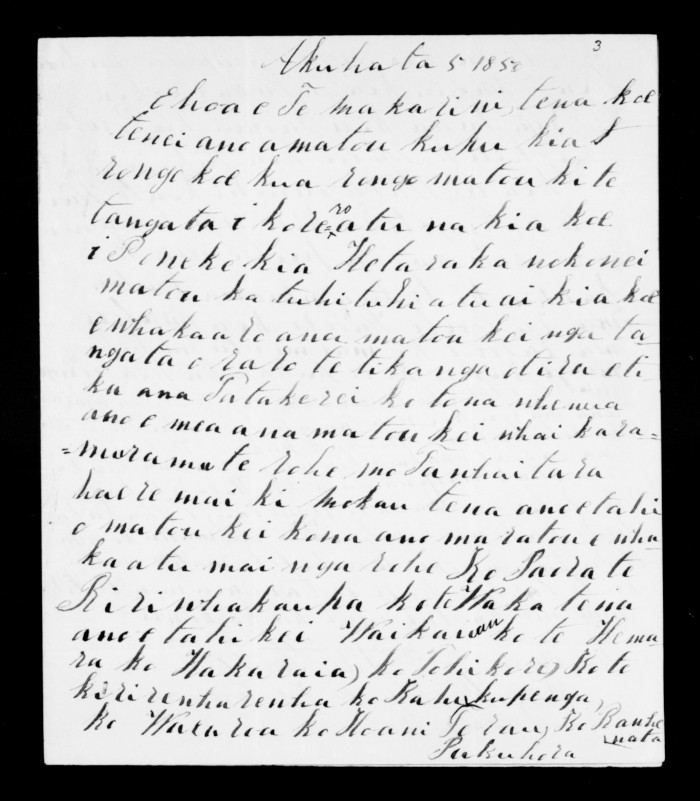 3
Akuhata 5 1850
Ehoa e Te makarini, tena koe
tenei ano amatou kupu kia
rongo koe kua rongo matou ki te
tangata i korero atu na kia koe
i Poneke kia Hetaraka nokonei
matou ka tuhituhi atu ai kia koe
e whakaaro ana matou kei nga ta
ngata o raro te tikanga otira eti
ka ana Tutakerei ko tona whenua
ano e mea ana matou kei whai kara=
=mu ra mo te rohe mo Tawhaitara
haere mai ki mokau tena ano etahi
o matou kei kona ano ma ratou e wha
kaatu mai nga rohe Ko Paora te
Ririwhakaupa ko te Waka tena
ano etahi kei Waikauau ko te Hemā
ra ko Hakaraia, ko Tohikore, Ko te
kiri rewharewha ko Kahukupenga,
ko Wairoa ko Hoani Te rau, Ko
Pukuhora